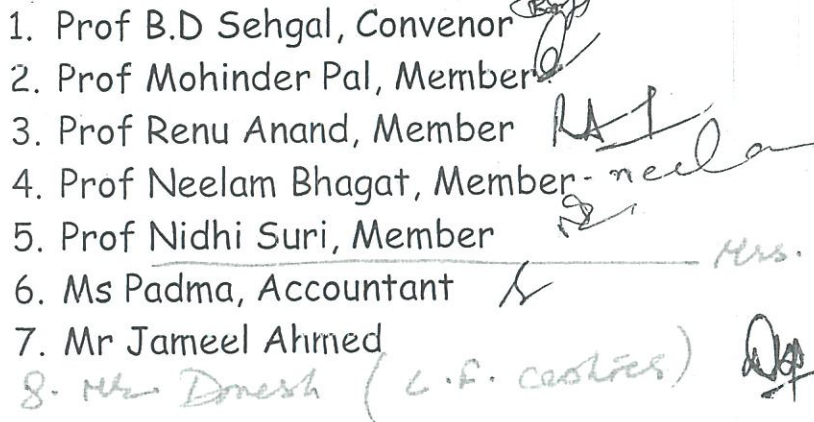 1. Prof B.D Sehgal, Convenor
2. Prof Mohinder Pal, Member
3. Prof Renu Anand, Member
4. Prof Neelam Bhagat, Member - neela
5. Prof Nidhi Suri, Member
Mrs.
6. Ms Padma, Accountant
7. Mr Jameel Ahmed
8. Mr. Dinesh (L.F. cashier)